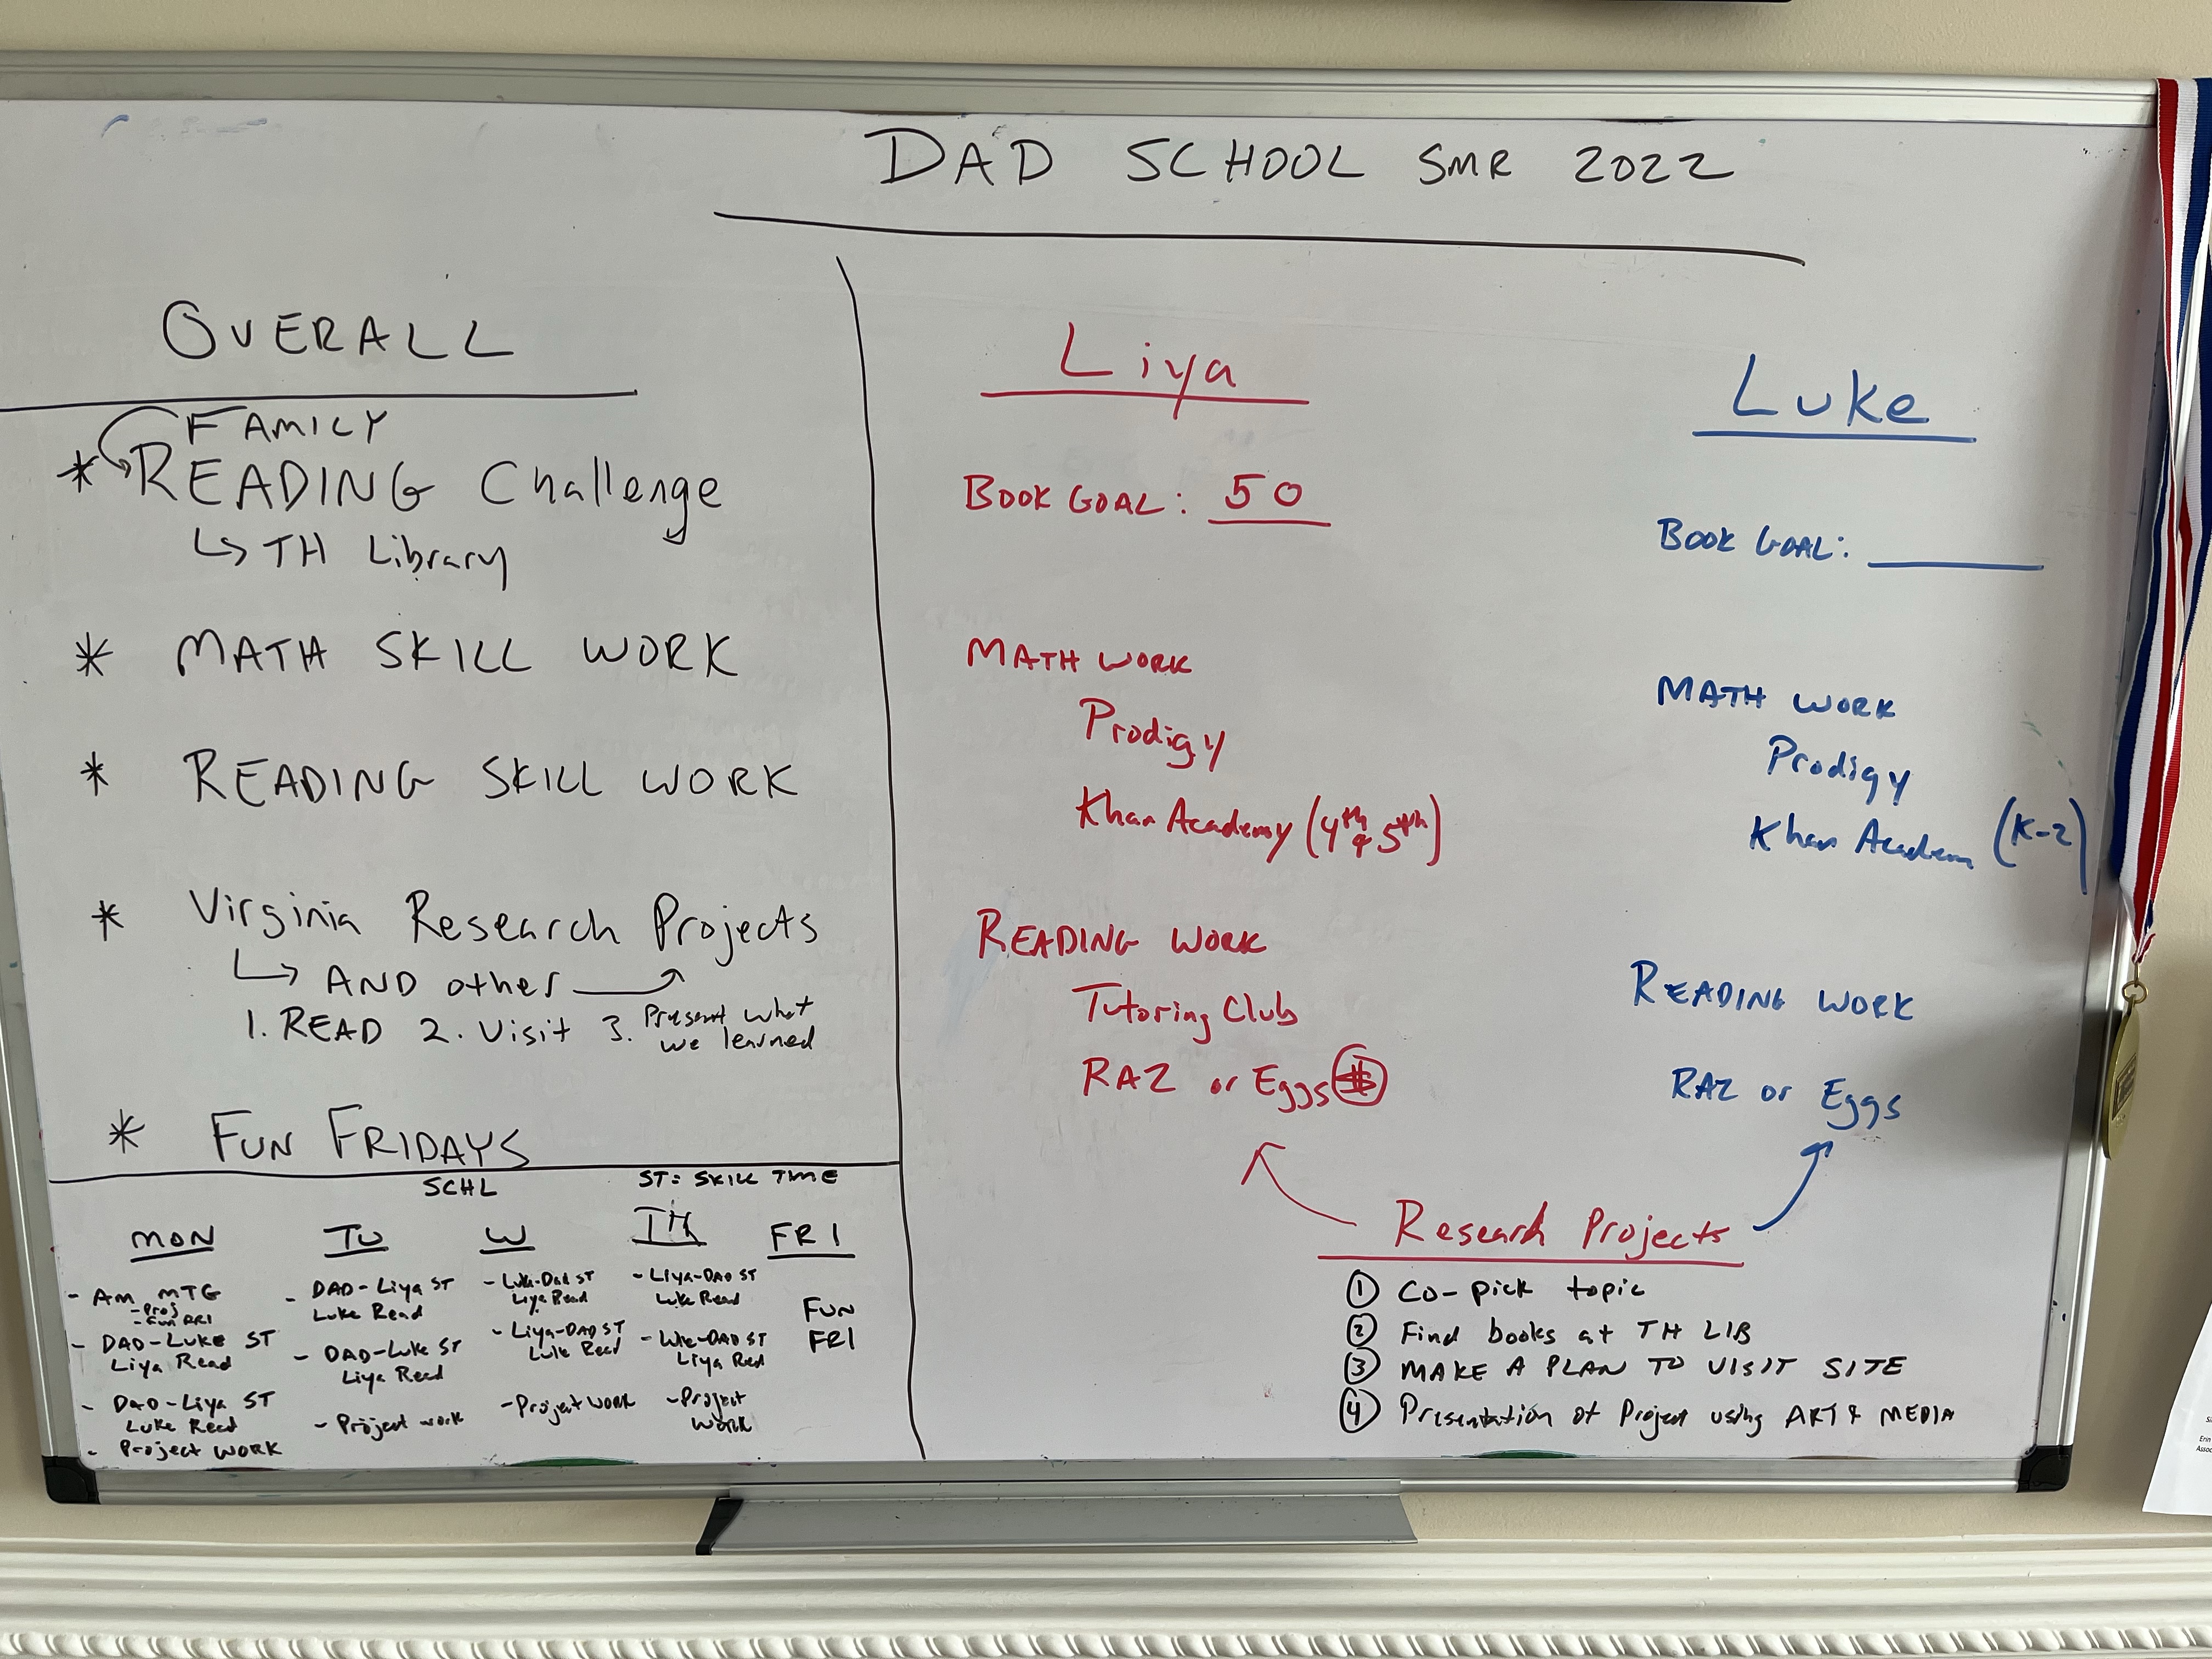 DAD SCHOOL SMR 2022
OVERALL
FAMILY
* READING Challenge
↳ TH Library
* MATH SKILL WORK
* READING SKILL WORK
* Virginia Research Projects
↳ AND other
1. READ 2. Visit 3. Present what
we learned
* FUN FRIDAYS
SCHL
ST: SKILL TIME
MON
- AM MTG
- Proj
- Fun FRI
- DAD-LUKE ST
Liya Read
- DAD-Liya ST
Luke Read
- Project WORK
TU
- DAD-Liya ST
Luke Read
- DAD-Luke ST
Liya Read
- Project work
W
- Luke-Dad ST
Liya Read
- Liya-DAD ST
Luke Read
- Project WORK
TH
- Liya-DAD ST
Luke Read
- DAD ST
Liya Read
- Project
WORK
FRI
FUN
FRI
Liya
BOOK GOAL: 50
MATH WORK
Prodigy
Khan Academy (4th & 5th)
READING WORK
Tutoring Club
RAZ or Eggs
Luke
BOOK GOAL: ______
MATH WORK
Prodigy
Khan Academ (K-2)
READING WORK
RAZ or Eggs
Research Projects
① Co-pick topic
② Find books at TH LIB
③ MAKE A PLAN TO VISIT SITE
④ Presentation of Project using ART & MEDIA
Erin
Assoc